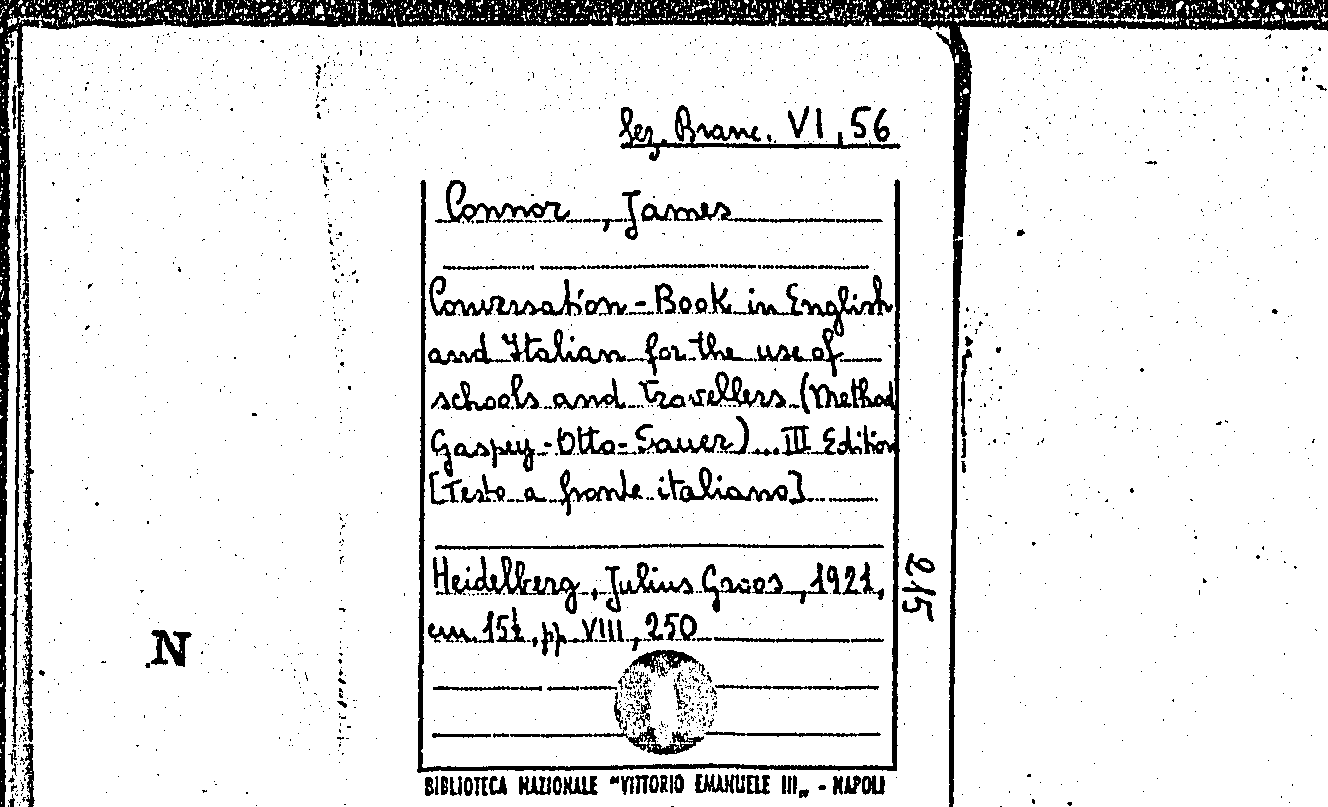 Sez. Branc. VI, 56
Connor, James
Conversation-Book in English
and Italian for the use of
schools and travellers (Method
Gaspey-Otto-Sauer)... III Edition
[Testo a fronte italiano]
Heidelberg, Julius Groos, 1921,
cm. 15½, pp. VIII, 250
215
N
BIBLIOTECA NAZIONALE "VITTORIO EMANUELE III„ - NAPOLI